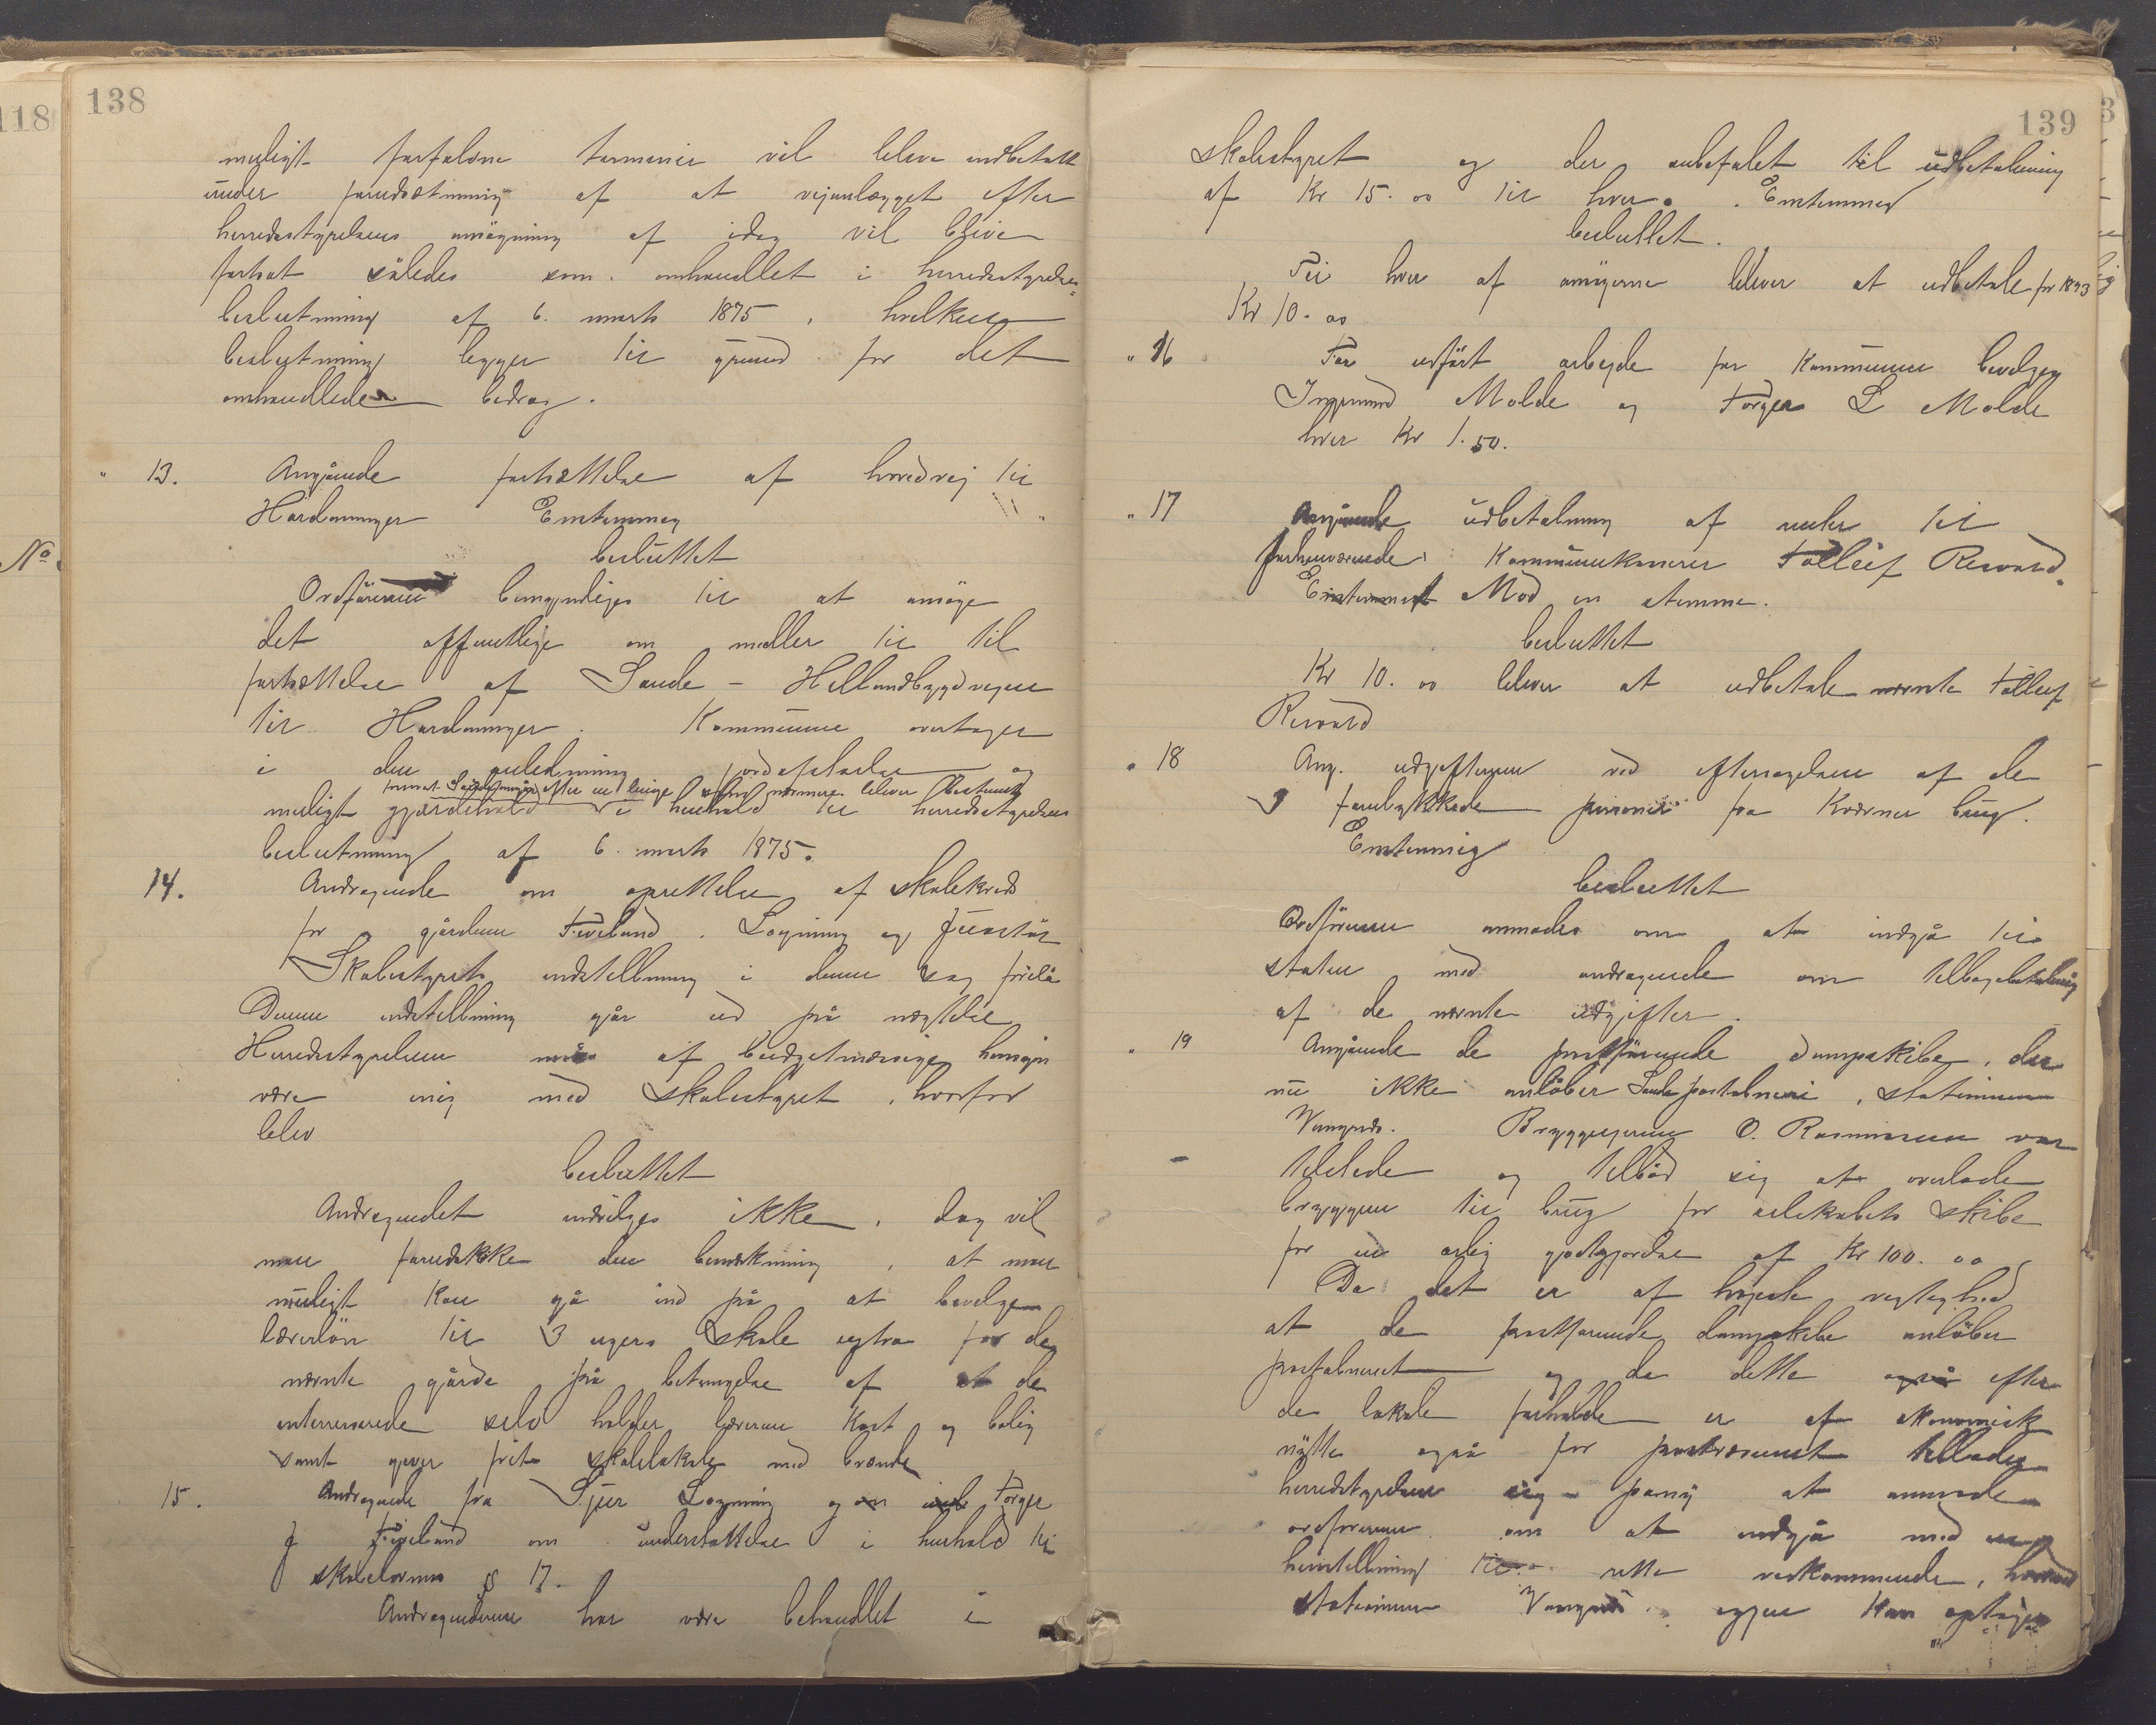 118
138
muligt forfaldne terminer vil bleve indbetalt
under forudsætning af at vejanlægget efter
herredsstyrelsens ansøgning af idag vil blive
fortsat således som omhandlet i herredsstyrelses-
beslutning af 6. marts 1875, hvilken
beslutning legges til grund for det
omhandlede bedrag.
" 13. Angående fortsættelse af hovedvej til
Hardanger Enstemmig "
besluttet
Ordføreren bemyndiges til at ansøge
det offentlige om midler til til
fortsættelse af Sande - Hellandbygdvejen
til Hardanger. Kommunen overtager
i den anledning jordafståelse og
efter en linje som nærmere bliver bestemt
muligt gjærdehold i henhold til herredsstyrelsens
beslutning af 6. marts 1875.
No
14. Andragende om oprettelse af skolekreds
for gårdene Fiveland, Logning og
Skolestyrets indstilling i denne sag forelå
Denne indstilling går ud på nægtelse
Herredsstyrelsen må af budgetmæssige hensyn
være enig med skolestyret, hvorfor
blev
besluttet
Andragendet indvilges ikke, dog vil
man forudskikke den bemærkning, at man
muligt kan gå ind på at bevilge
lærerløn til 3 ugers skole extra for de
nævnte gårde på betingelse af at de
interreserede selv holder læreren kost og bolig
samt giver frit skolelokale med brænde
15. Andragende fra Sjur Logning og Torger
J Fiveland om understøttelse i henhold til
skolelovens § 17.
Andragenderne har være behandlet i
139
skolestyret og der anbefalet til udbetalning
af Kr 15.00 til hver. Enstemmig
besluttet.
Til hver af ansøgerne bliver at udbetale for 1893
Kr 10.00
" 16 For udført arbejde for Kommunen bevilges
Ingemund Molde og Torger L Molde
hver Kr 1.50.
" 17 Angående udbetalning af midler til
forhenværende Kommunekasserer Tolleif Risvold.
Enstemmigt Mod en stemme.
besluttet
Kr 10.00 bliver at udbetale nævnte Tolleif
Risvold
" 18 Ang. udgifterne ved eftersøgelsen af de
3 forulykkede personer fra Kværner brug.
Enstemmig
besluttet
Ordføreren anmodes om at indgå til
staten med andragende om tilbagebetalning
af de nævnte udgifter.
" 19 Angående de postførende dampskibe, der
nu ikke anløber Sande postabneri, stationen
Vangsnes. Bryggeejeren O. Rasmussen var
tilstede og tilbød sig at overlade
bryggen til brug for selskabets skibe
for en årlig godtgjørelse af Kr 100.00
Da det er af højeste vigtighed
at de postførende dampskibe anløber
postabneriet og da dette også efter
de lokale forholde er af økonomisk
nytte også for postvæsenet tillader
herredstyrelsen sig påny at anmode
ordføreren om at indgå med en
henstilling til rette vedkommende, hvorved
stationen Vangsnes igjen kan optages